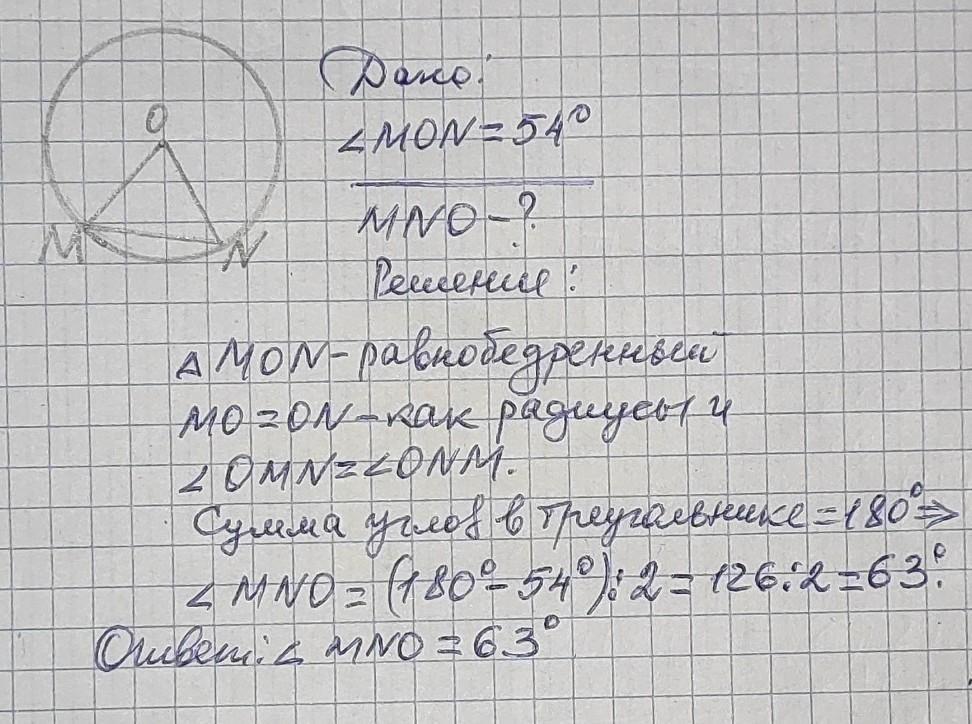 O
M
N
Дано:
∠MON=54°
MNO-?
Решение:
△MON-равнобедренный
MO=ON-как радиусы и
∠OMN=∠ONM.
Сумма углов в треугольнике=180°⇒
∠MNO=(180°-54°):2=126:2=63°.
Ответ:∠MNO=63°